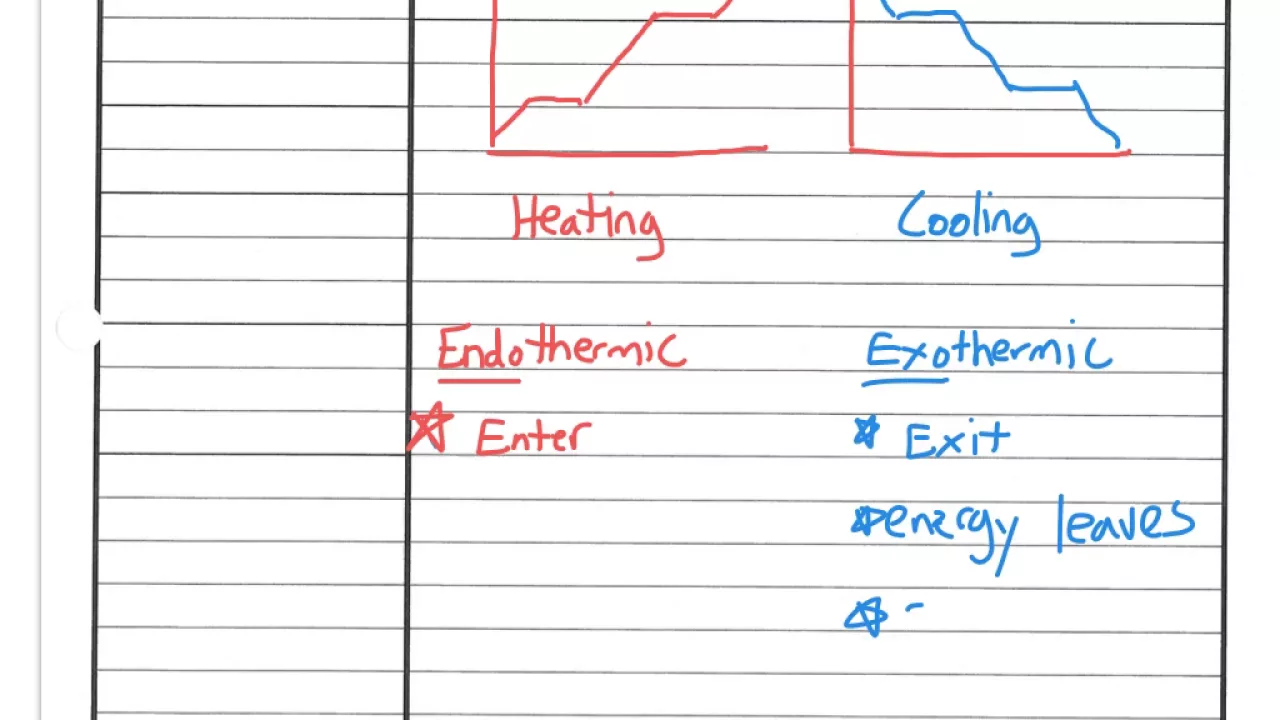 Heating Cooling
Endothermic Exothermic
Enter Exit
energy leaves